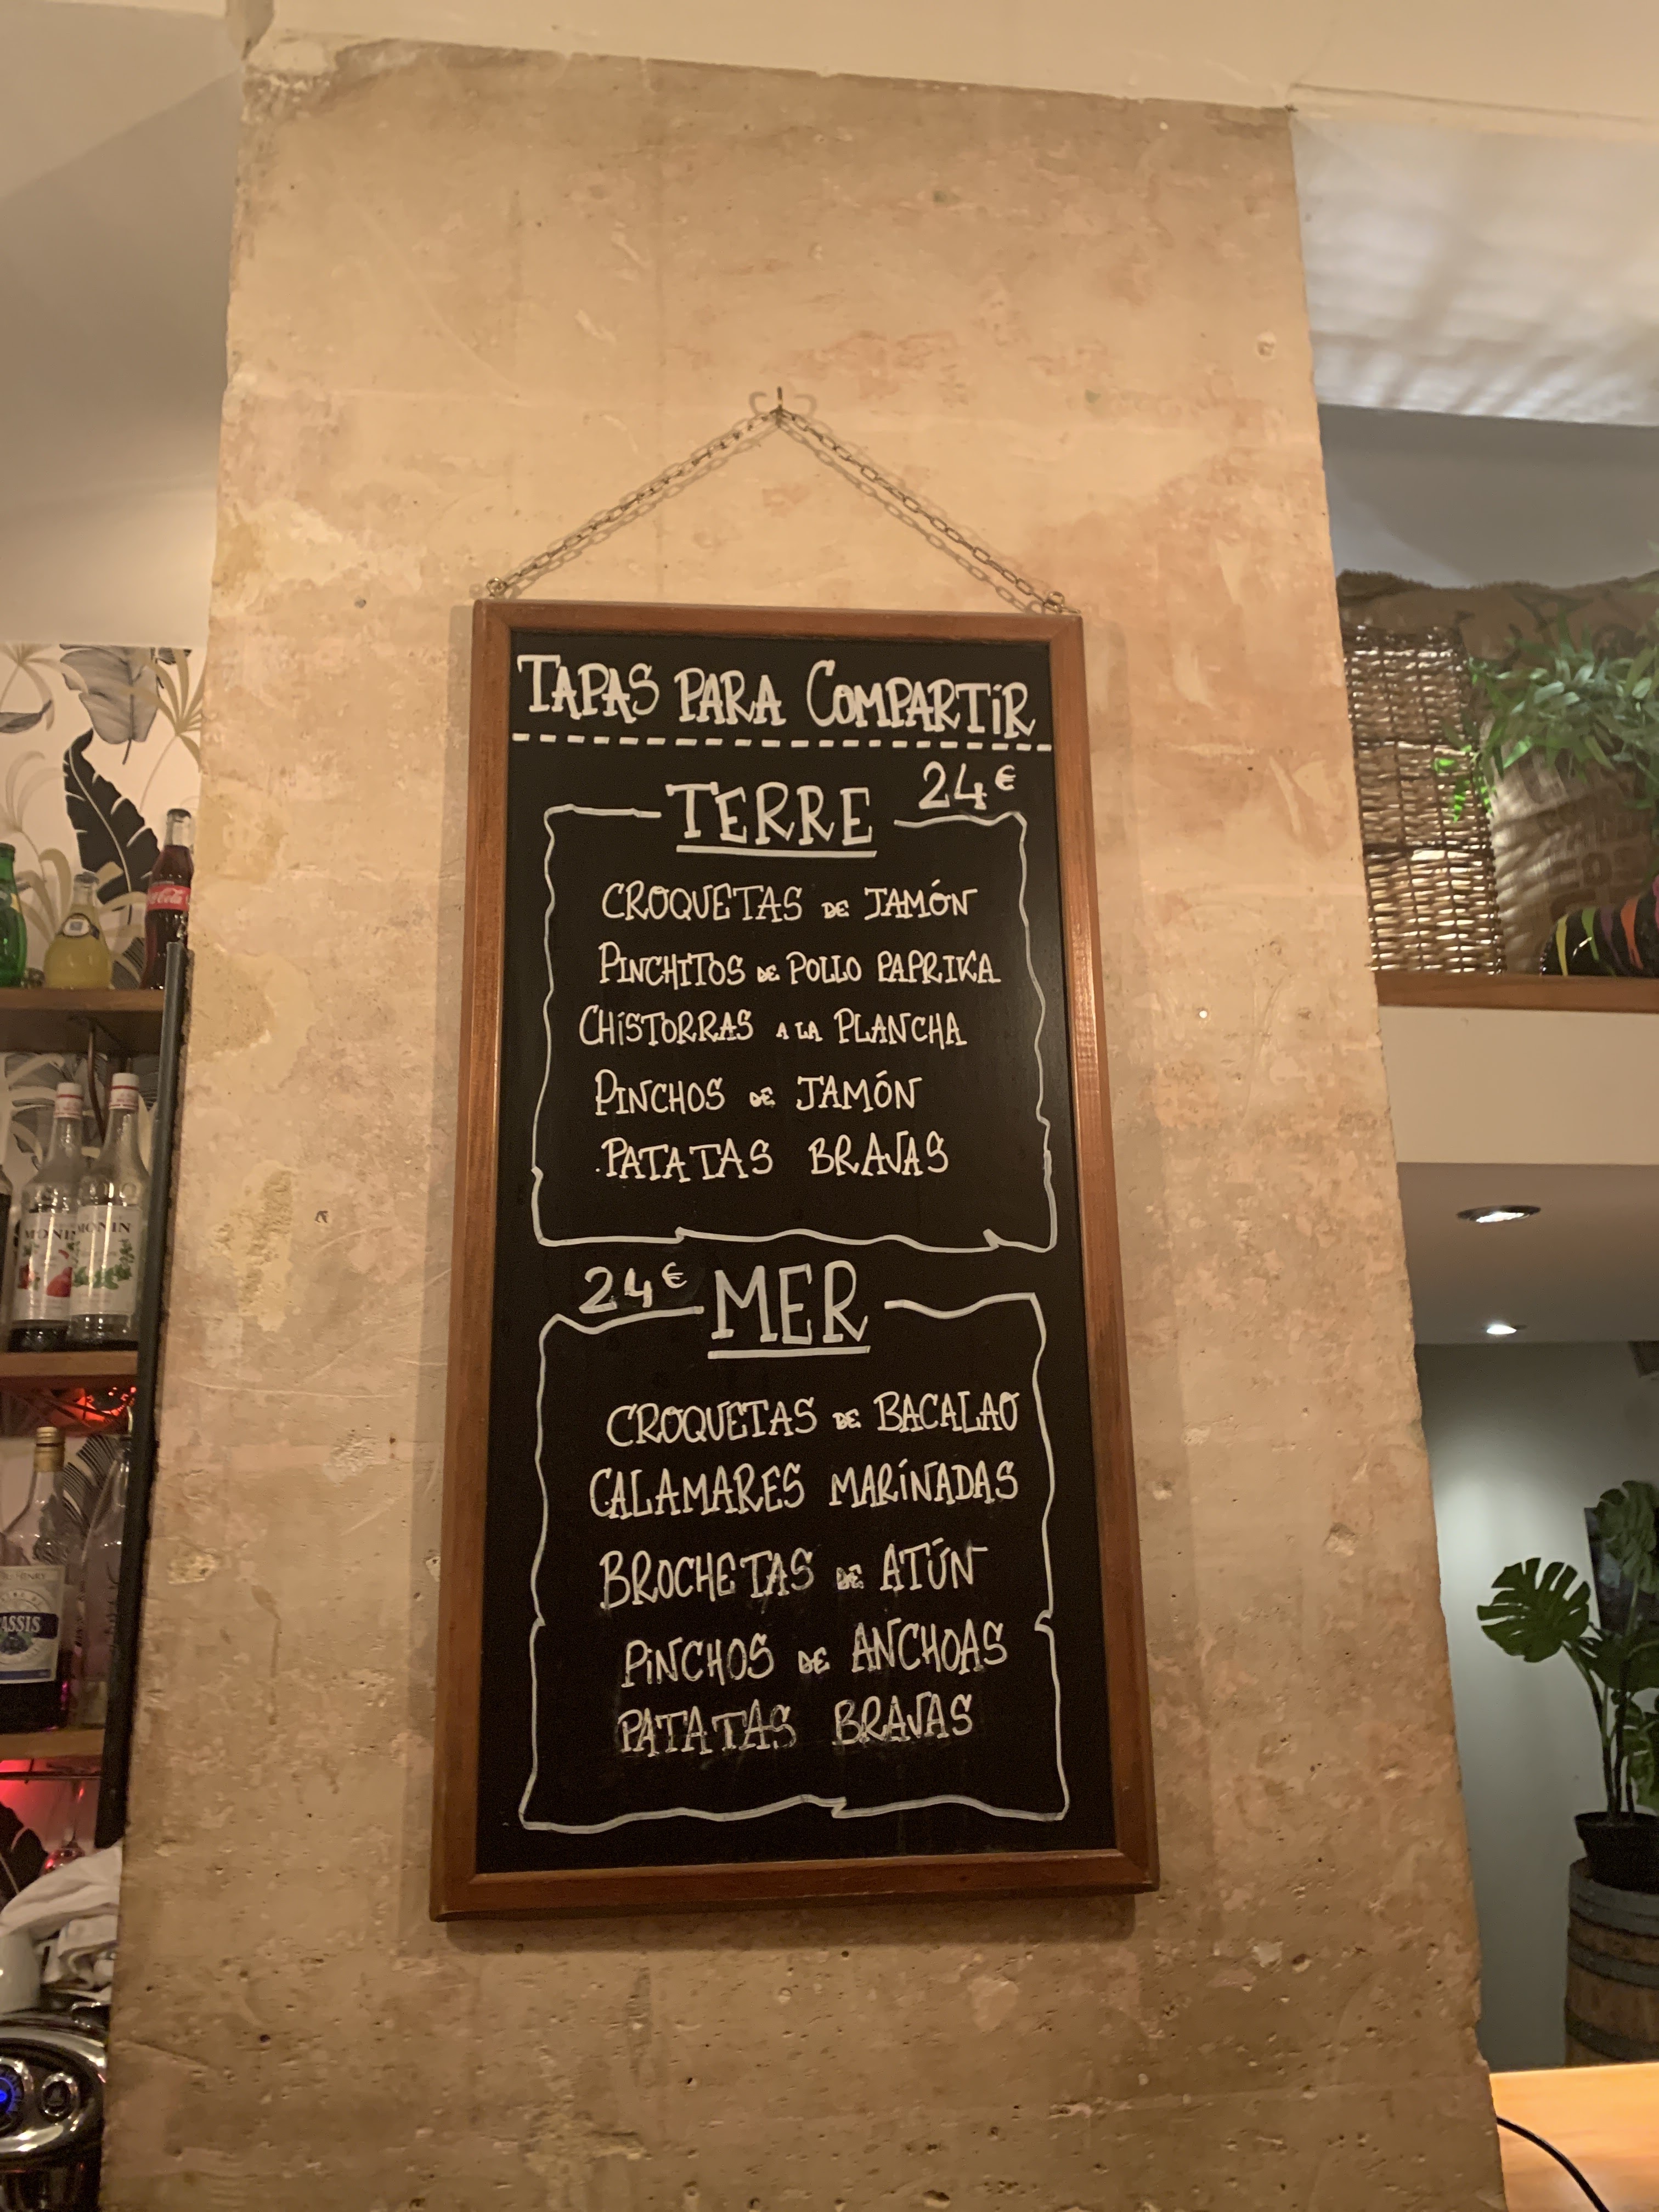 TAPAS PARA COMPARTIR
TERRE 24€
CROQUETAS DE JAMÓN
PINCHITOS DE POLLO PAPRIKA
CHISTORRAS A LA PLANCHA
PINCHOS DE JAMÓN
PATATAS BRAVAS
24€ MER
CROQUETAS DE BACALAO
CALAMARES MARINADAS
BROCHETAS DE ATÚN
PINCHOS DE ANCHOAS
PATATAS BRAVAS
Coca-Cola
MONIN
MONIN